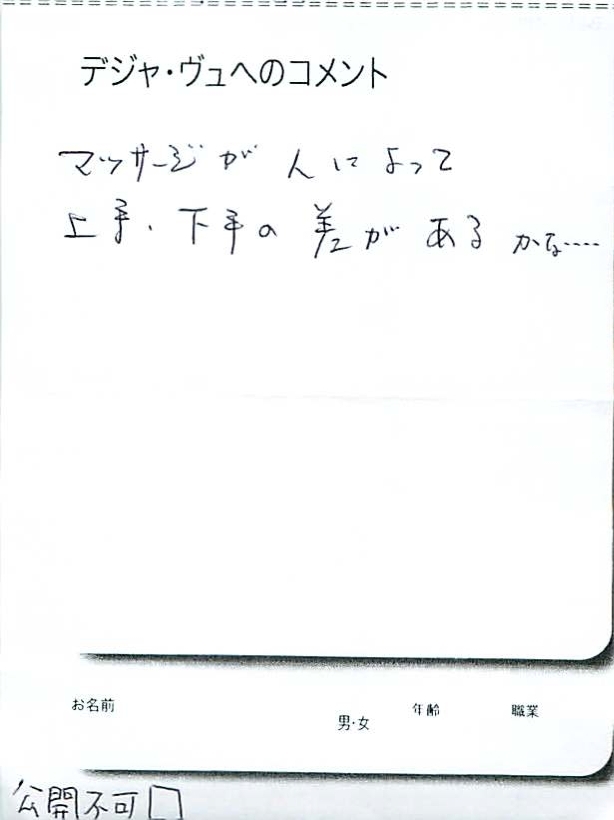 デジャ・ヴュへのコメント
マッサージが人によって
上手・下手の差があるかな……
お名前
男・女
年齢
職業
公開不可□